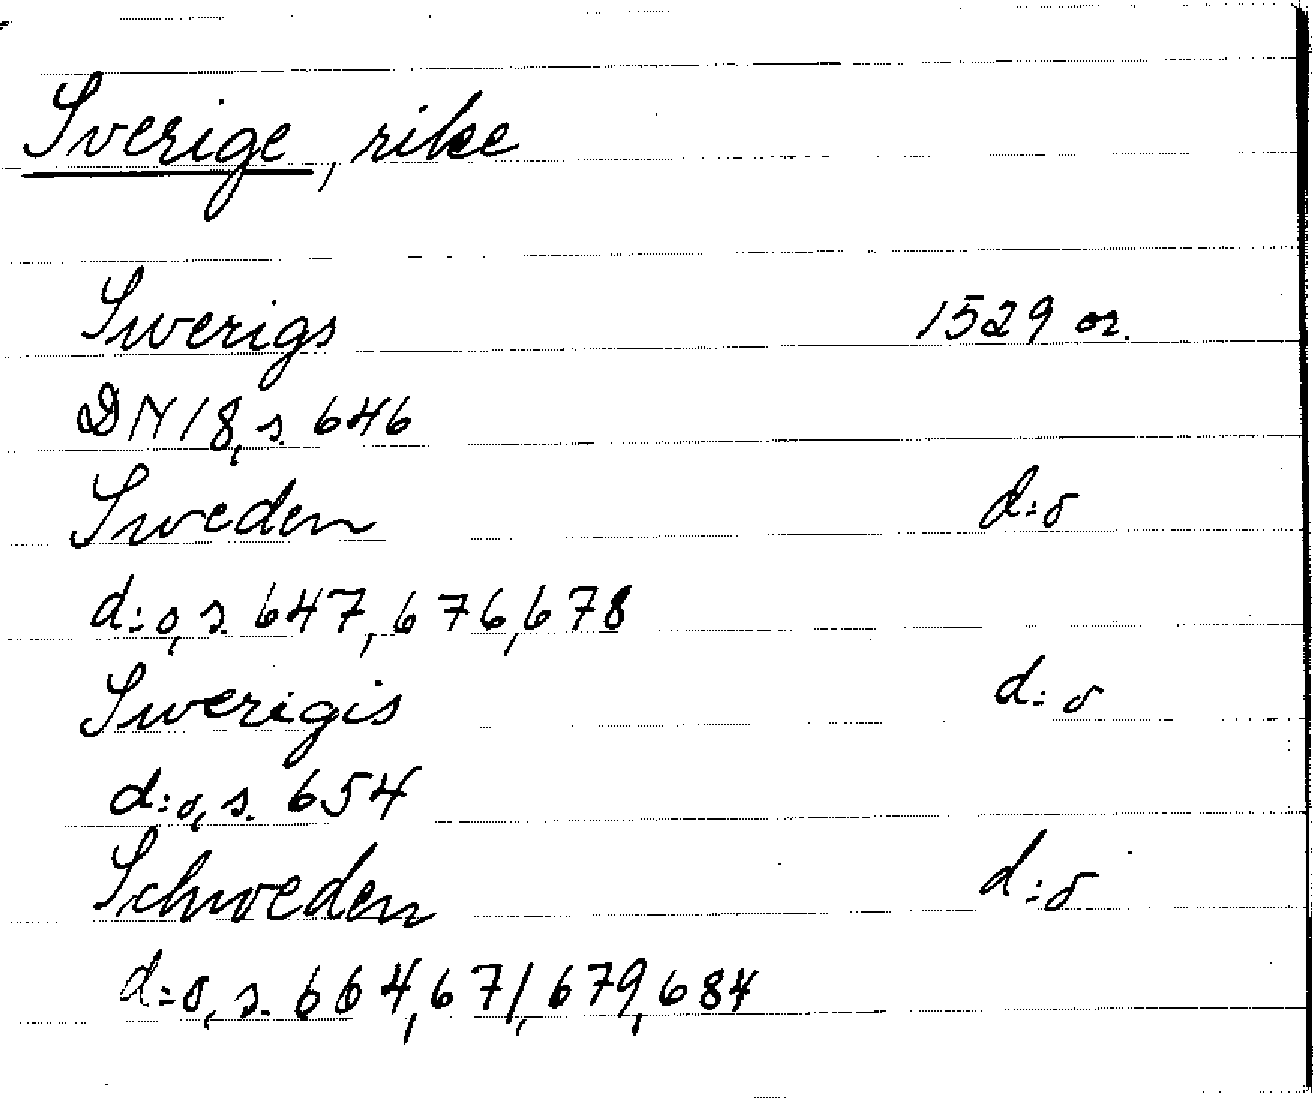 Sverige, rike
Swerigs 1529 or.
DN 18, s. 646
Sweden d:o
d:o, s. 647, 676, 678
Swerigis d:o
d:o, s. 654
Schweden d:o
d:o, s. 664, 671, 679, 684